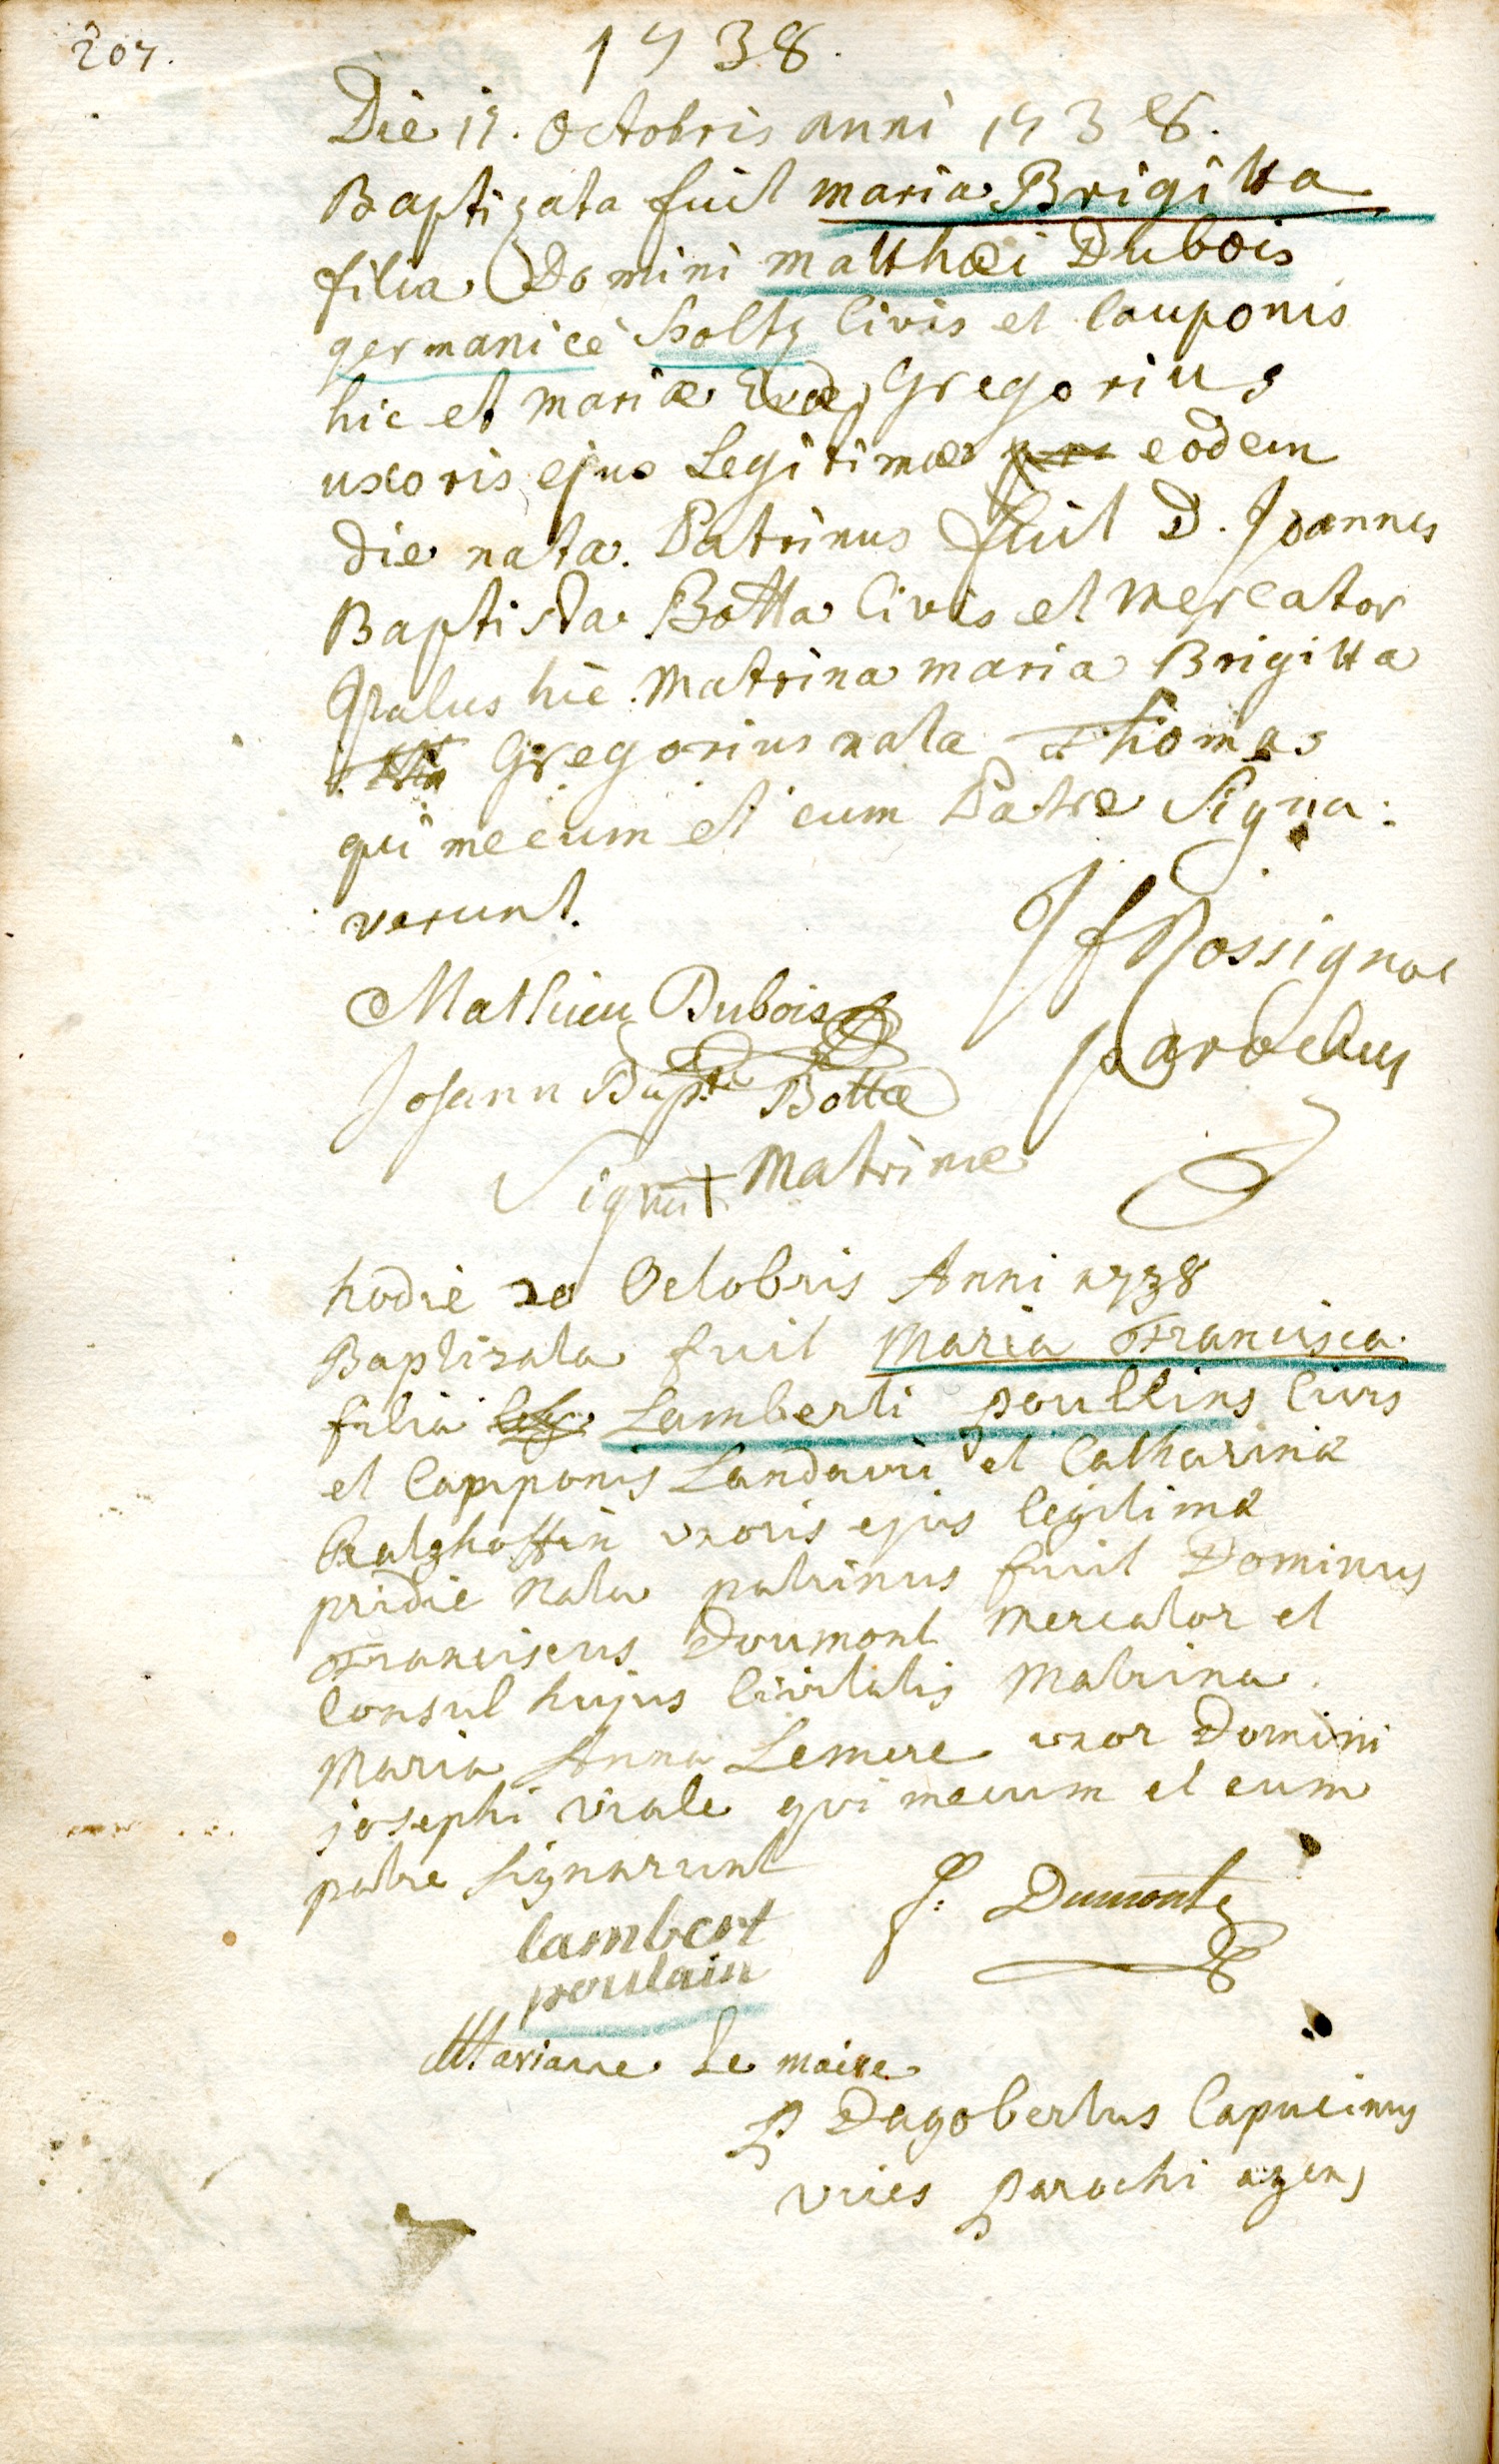 207.
1738.
Die 17. Octobris anni 1738.
Baptizata fuit maria Brigitta
filia Domini matthæi Dubois
germanicè Holtz Civis et Cauponis
hic et mariæ Evæ Gregorius
uxoris ejus Legitimæ eodem
die nata. Patrinus fuit D. Joannes
Baptista Botta Civis et Mercator
Italus hic. Matrina maria Brigitta
Gregorius nata Thomas
qui mecum et cum Patre Signa:
verunt.
JfRossignol
parochus
Mathieu Dubois
Johann Bapt. Botta
Signū + Matrinæ
hodie 20 Octobris Anni 1738
Baptizata fuit Maria Francisca
filia Lamberti poullins Civis
et Cauponis Landavii et Catharinæ
uxoris ejus legitimæ
pridie Nata patrinus fuit Dominus
Franciscus Doumont Mercator et
Consul hujus Civitatis Matrina
Maria Anna Lemere uxor Domini
josephi virale qui mecum et cum
patre signarunt
f: Dumont
lambert
poulain
Marianne Le maire
P Dagobertus Capucinus
vices Parochi agens